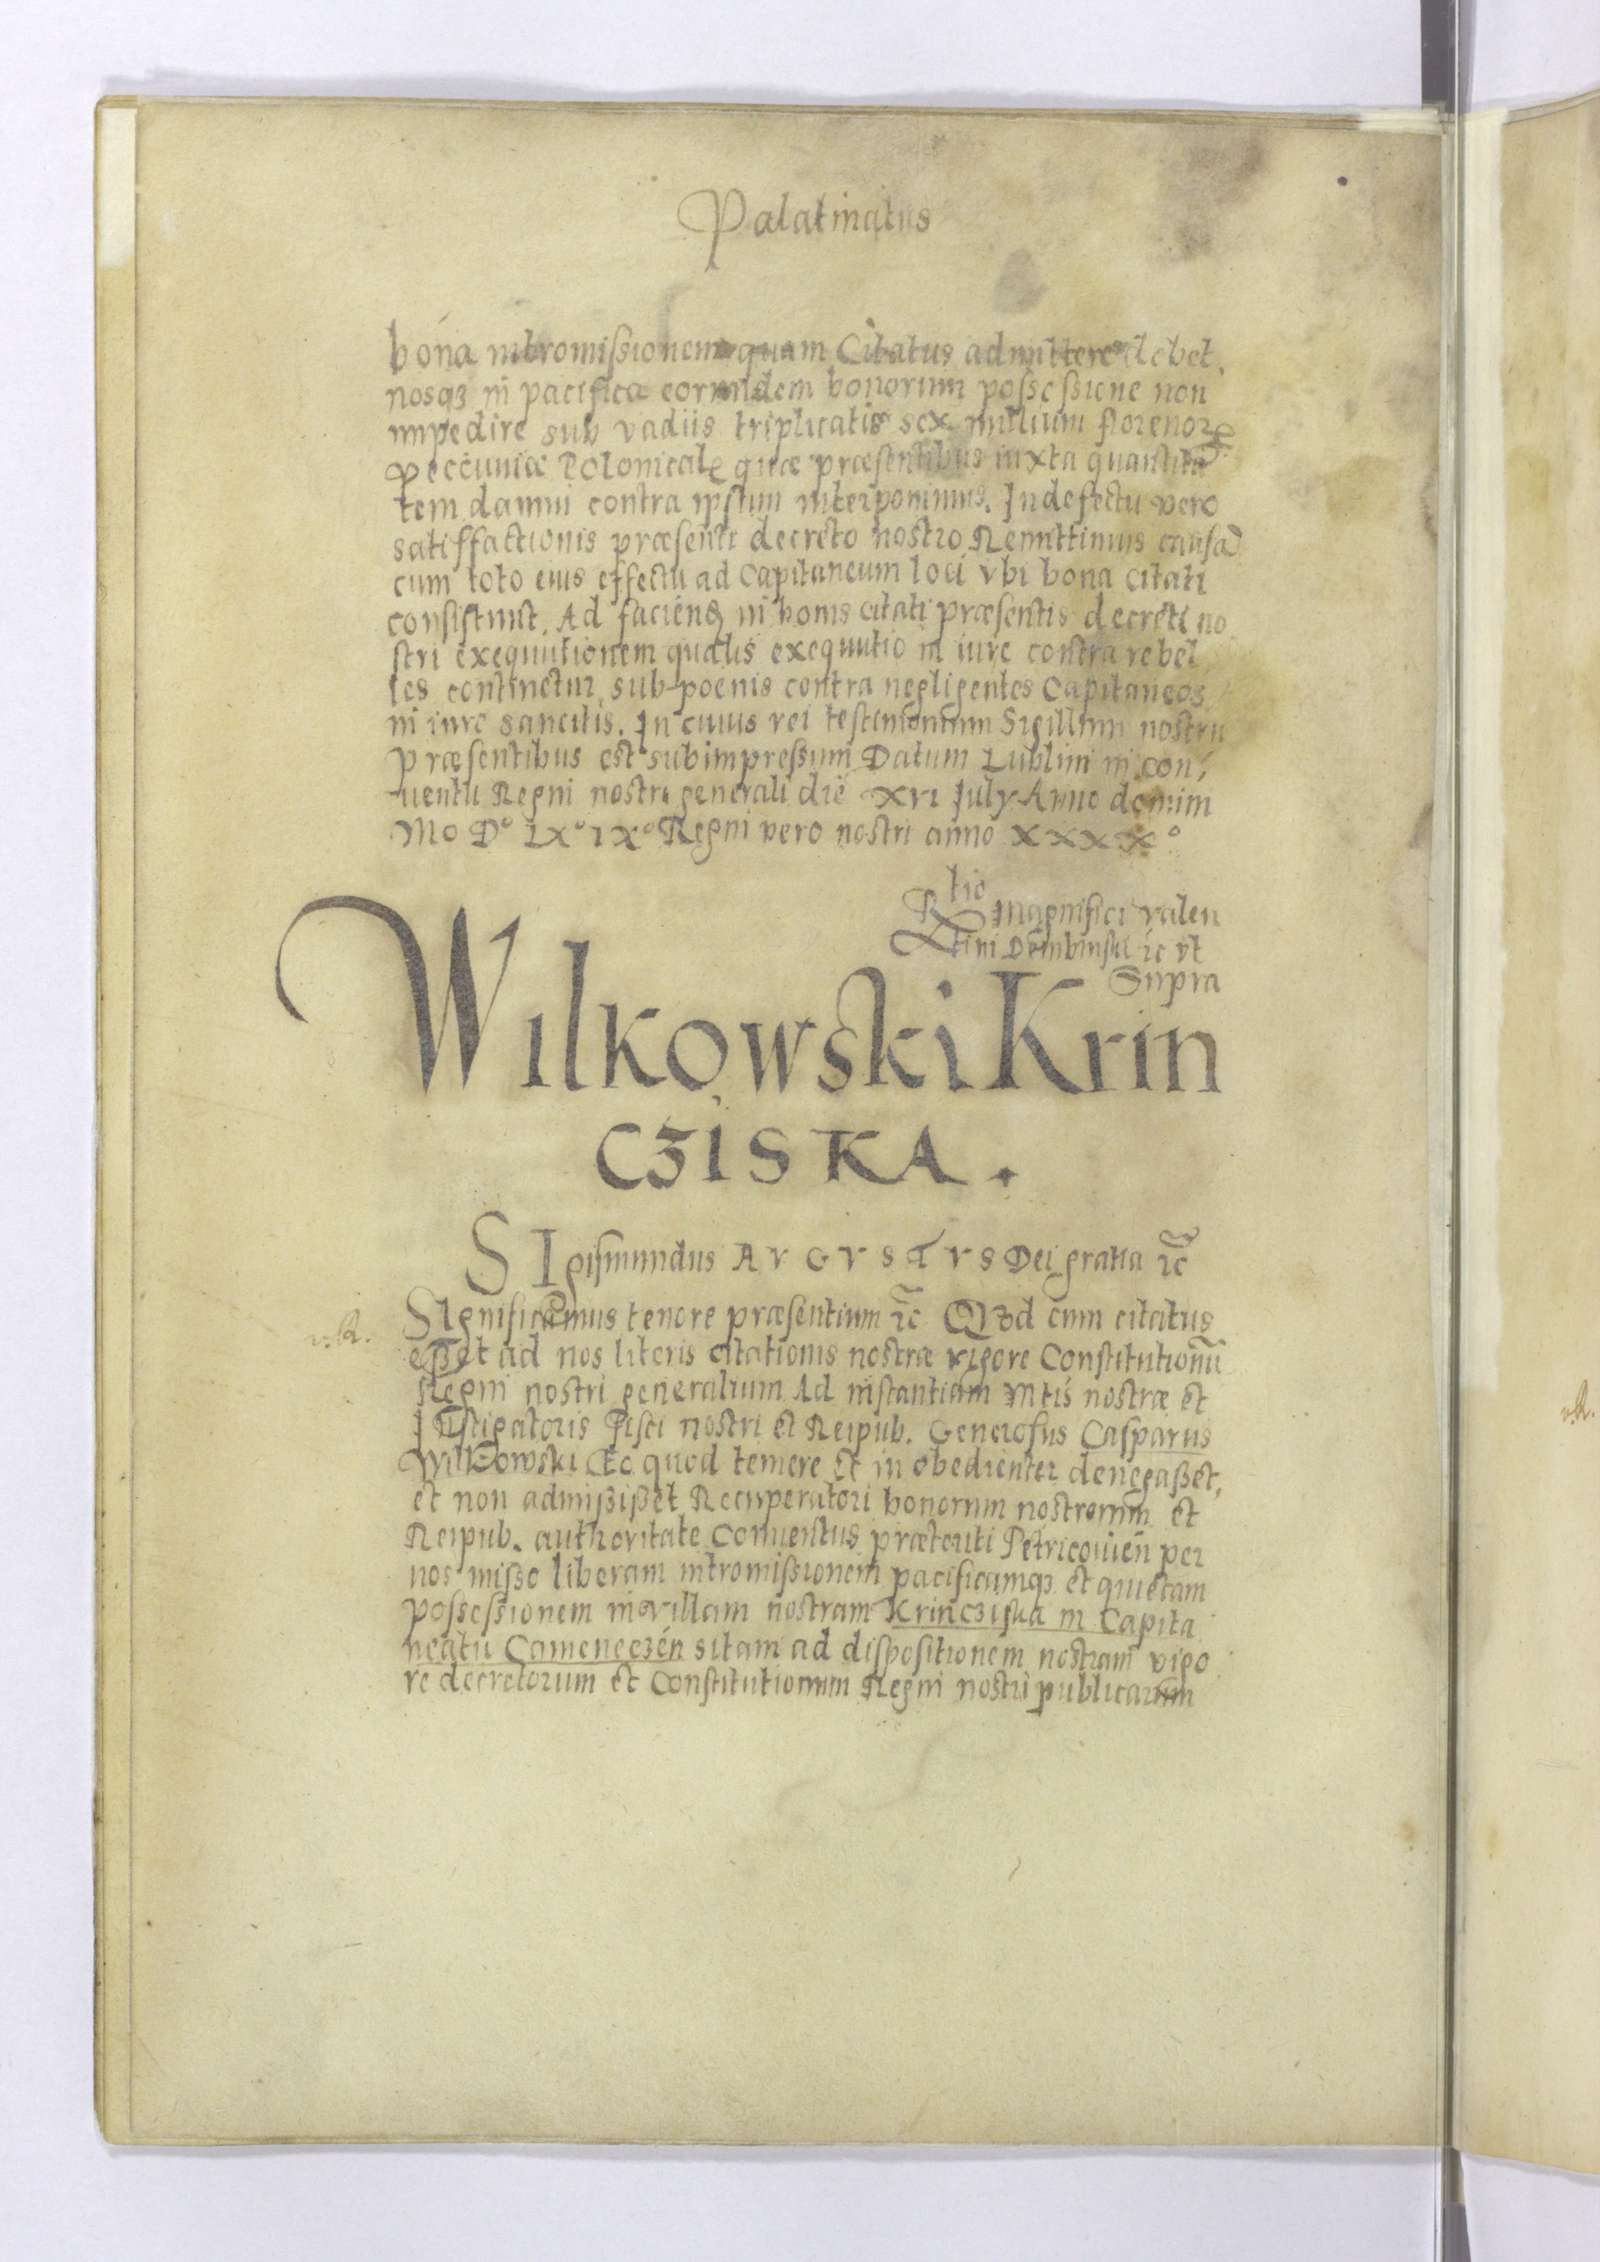 Palatinatus
bona intromissionem quam Citatus admittere debet,
nosqꝫ in pacifica eorundem bonorum possessione non
impedire sub vadiis triplicatis sex millium florenorꝝ
peccuniæ Polonicalꝭ quæ præsentibus iuxta quantita
tem damni contra ipsum interponimus. In defectu vero
satisffactionis præsenti decreto nostro Remittimus causã
cum toto eius effectu ad Capitaneum loci vbi bona citati
consistunt. Ad faciendꝭ in bonis citati præsentis decreti no
stri exequutionem qualis exequutio in iure contra rebel
les continetur sub poenis contra negligentes Capitaneos
in iure sancitis. In cuius rei testimonium Sigillum nostrũ
præsentibus est subimpressum Datum Lublini in con,
uentu Regni nostri generali die XVI July Anno domini
Mo Dº LXº IXº Regni vero nostri anno XXXXº
Rtio Magnifici Valen
tini Dembinski ꝛc vt
Supra
Wilkowski Krin
CZISKA.
SIgismundus AVGVSTVS Dei gratia ꝛc̃
SIgnificamus tenore præsentium ꝛc̃ Qvod cum citatus
eßet ad nos literis citationis nostræ vigore Constitutionũ
Regni nostri generalium Ad instantiam Mtis nostræ et
INstigatoris Fisci nostri et Reipub. Generosus Casparus
Wilkowski Eo quod temere et in obedienter denegaßet,
et non admißißet Recuperatori bonorum nostrorum et
Reipub. authoritate Conuentus præteriti Petricouieñ per
nos mißo liberam intromissionem pacificamqꝫ et quietam
possessionem in villam nostram Krincziska in Capita
neatu Cameneczén sitam ad dispositionem nostram vigo
re decretorum et Constitutionum Regni nostri publicarum